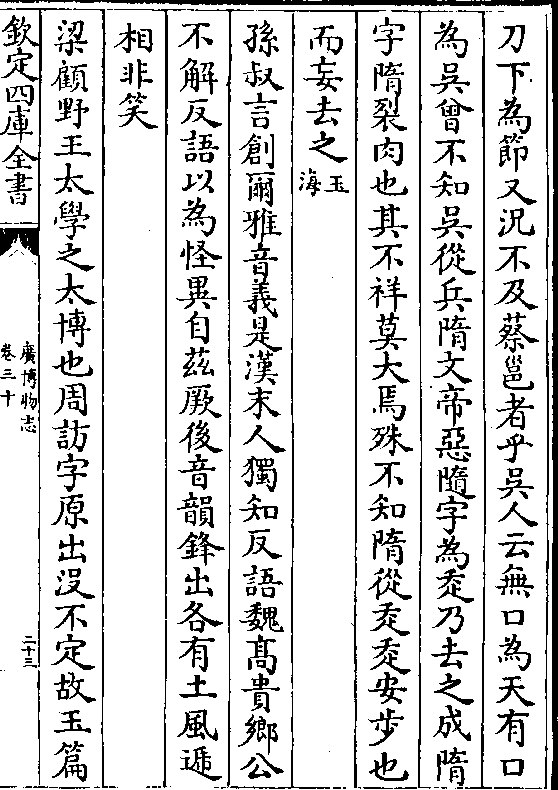 刀下為節又況不及蔡邕者乎吳人云無口為天有口
為吳曾不知吳從兵隋文帝惡隨字為𧺆乃去之成隋
字隋裂肉也其不祥莫大焉殊不知隋從辵辵安步也
而妄去之玉海
孫叔言創爾雅音義是漢末人獨知反語魏髙貴鄉公
不解反語以為怪異自茲厥後音韻鋒出各有土風遞
相非笑
梁顧野王太學之太博也周訪字原出没不定故玉篇
欽定四庫全書
廣博物志
卷三十
二十三